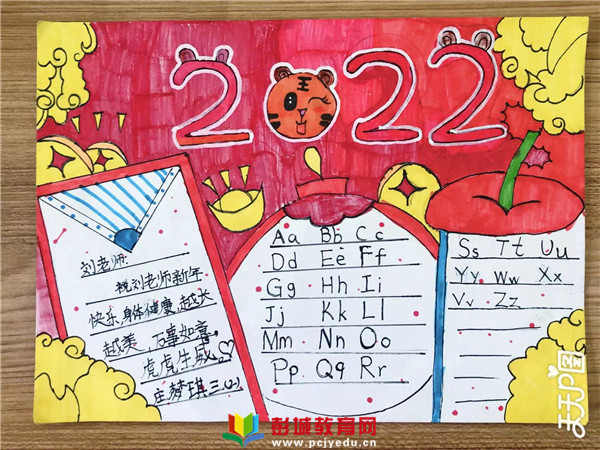 2022
王
刘老师:
祝刘老师新年
快乐,身体健康,越长
越美,万事如意,
虎虎生威
庄梦琪三(2)
Aa Bb Cc
Dd Ee Ff
Gg Hh Ii
Jj Kk Ll
Mm Nn Oo
Pp Qq Rr
Ss Tt Uu
Yy Ww Xx
Vv Zz
天天P图
彭城教育网
www.pcjyedu.cn